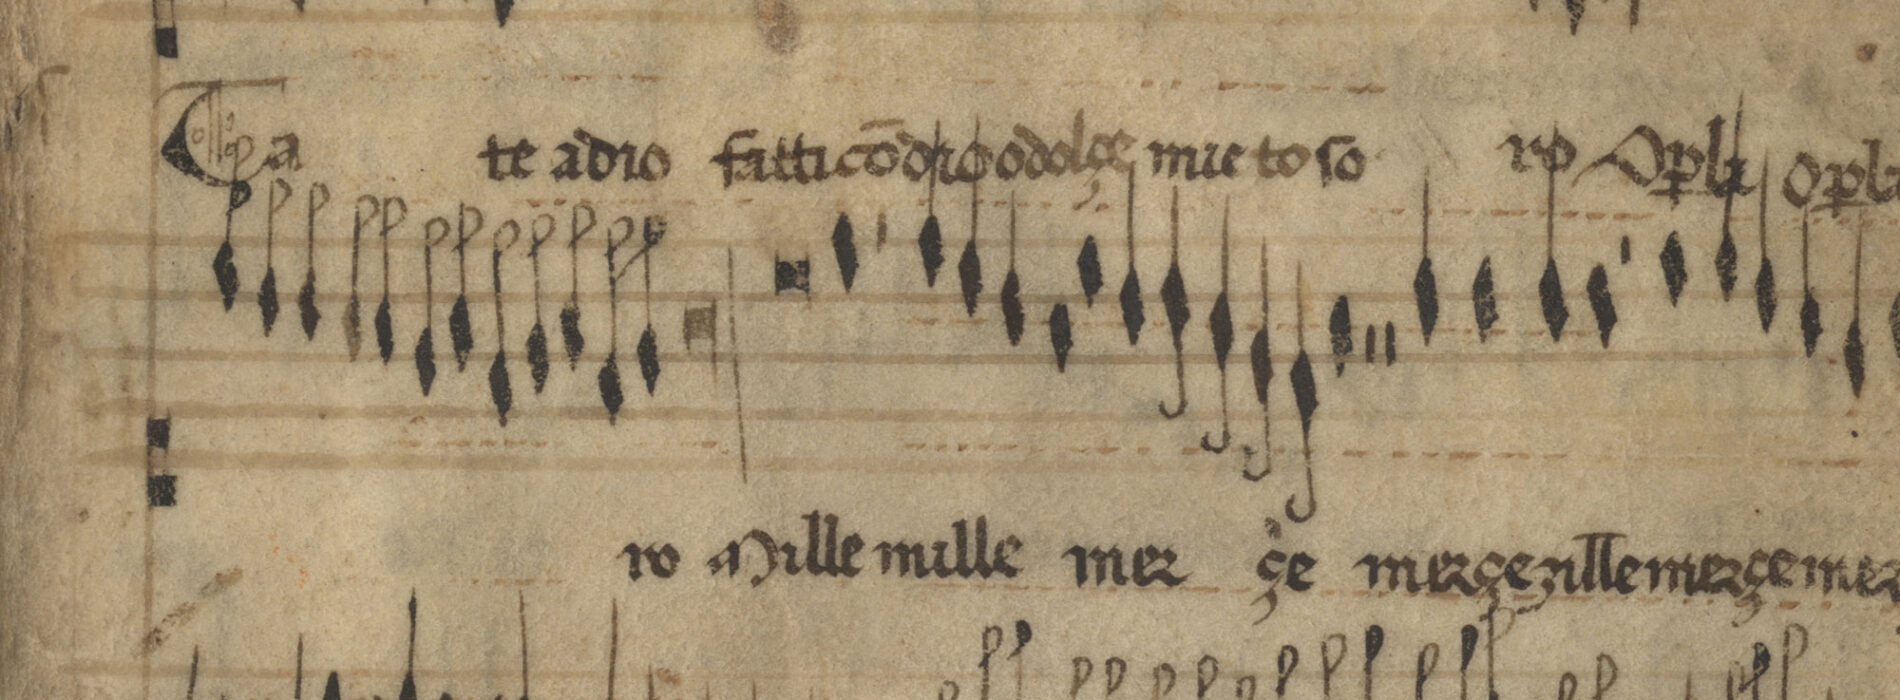 Ca te adio fatti cōdrioodolçe mie to so ro Opla opla
ro Mille mille mer çe merçe zille merçe mer